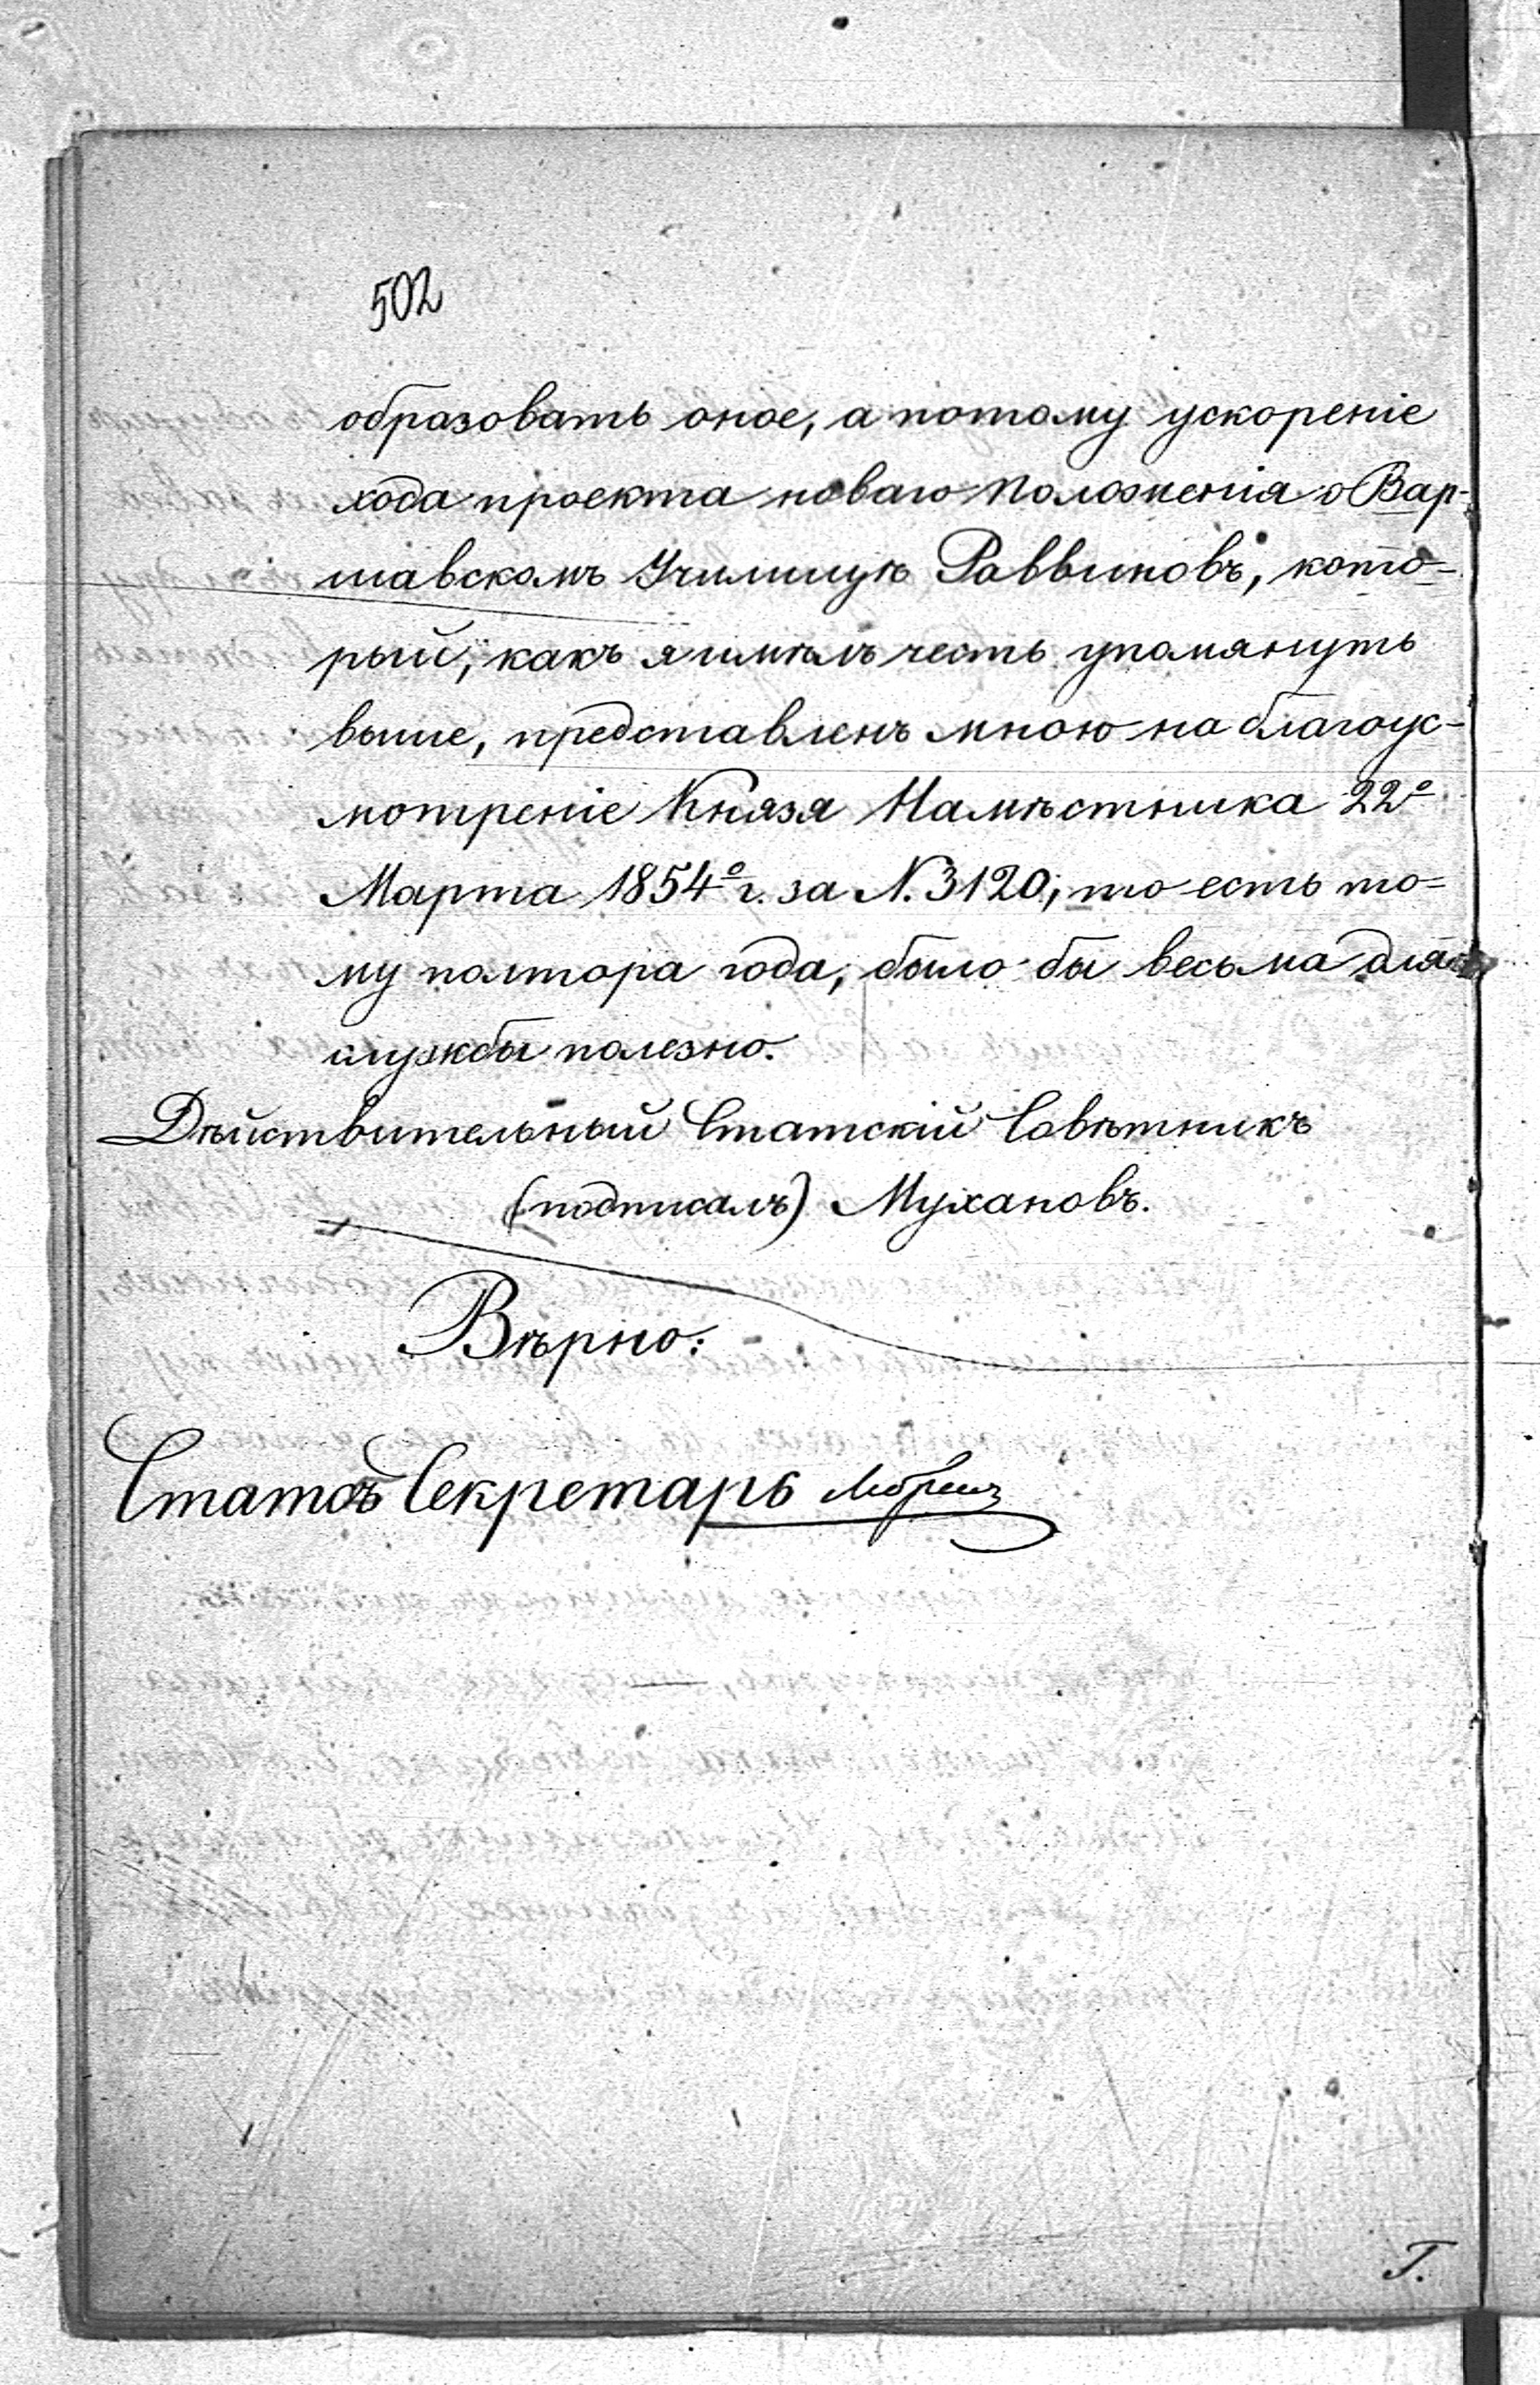 502
образовать оное, а потому ускореніе
хода проекта новаго Положенія о Вар-
шавскомъ Училищѣ Раввиновъ, кото-
рый, какъ я имѣлъ честь упомянуть
выше, представленъ мною на благоус-
мотреніе Князя Намѣстника 22º
Марта 1854º г. за N. 3120, то есть то-
му полтора года, было бы весьма для
службы полезно.
Дѣйствительный Статскій Совѣтникъ
(подписалъ) Мухановъ.
Вѣрно:
Статсъ Секретарь
Г.